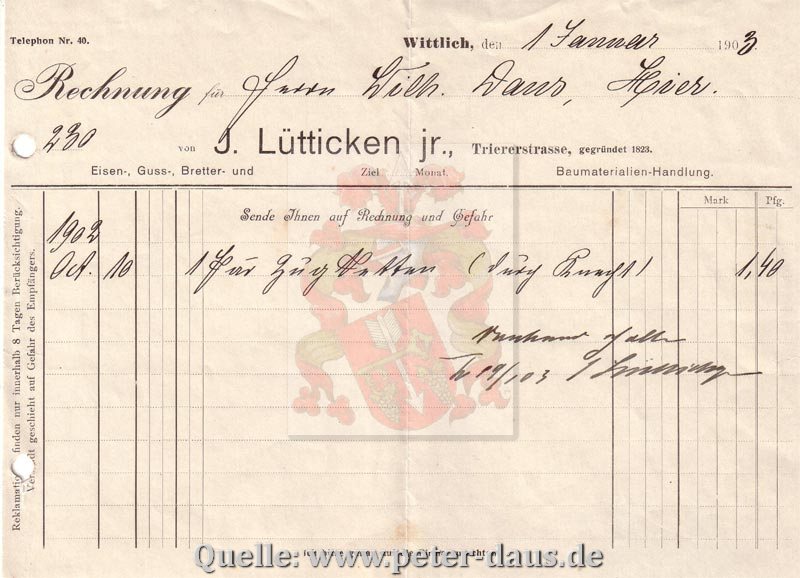 Telephon Nr. 40.
Wittlich, den 1 Januar 1903.
Rechnung für Herrn Wilh. Daus, Hier.
230 von J. Lütticken jr., Triererstrasse, gegründet 1823.
Eisen-, Guss-, Bretter- und Ziel Monat. Baumaterialien-Handlung.
Mark Pfg.
Sende Ihnen auf Rechnung und Gefahr
1902
Oct. 10 1 Paar Zugketten (durch Knecht) 1,40
dankend erhalten
19/1 03 J Lütticken
Reklamationen finden nur innerhalb 8 Tagen Berücksichtigung.
Versandt geschieht auf Gefahr des Empfängers.
Quelle: www.peter-daus.de